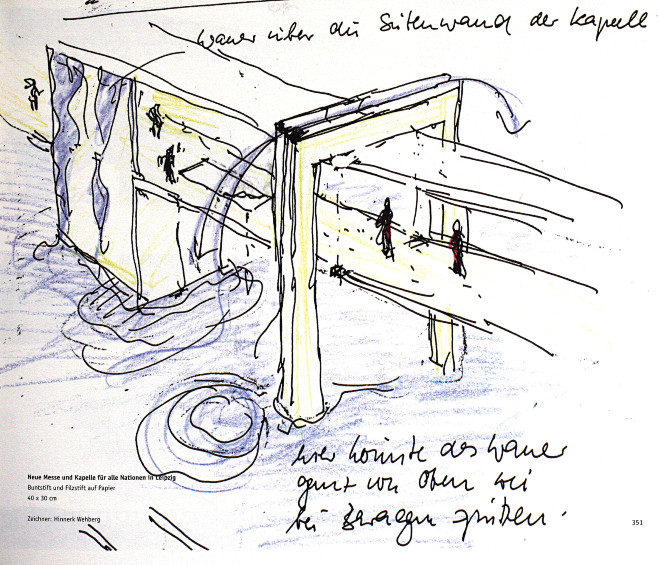 wasser über die Seitenwand der Kapelle
hier könnte das wasser
ganz von oben wie
bei
Neue Messe und Kapelle für alle Nationen in Leipzig
Buntstift und Filzstift auf Papier
40 x 30 cm
Zeichner: Hinnerk Wehberg
351